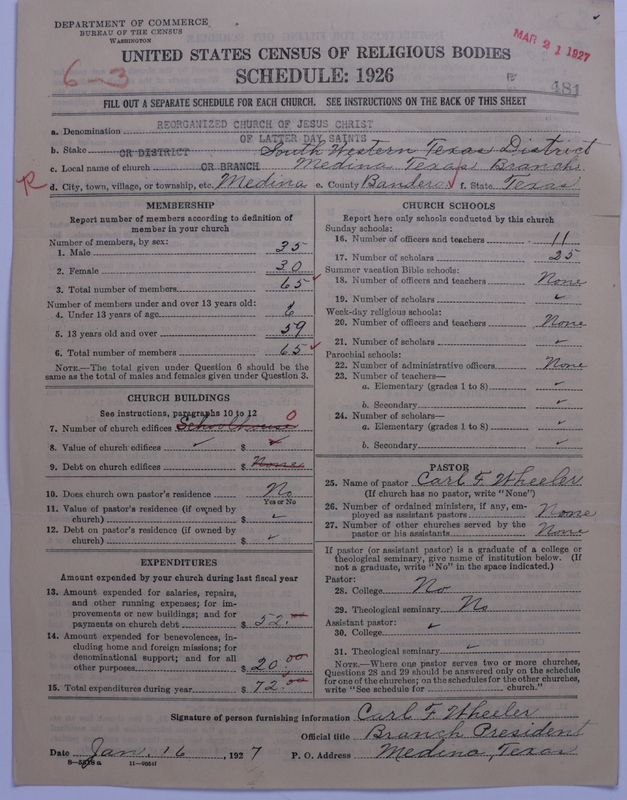 DEPARTMENT OF COMMERCE
BUREAU OF THE CENSUS
WASHINGTON
MAR 21 1927
6-3
UNITED STATES CENSUS OF RELIGIOUS BODIES
SCHEDULE: 1926
481
FILL OUT A SEPARATE SCHEDULE FOR EACH CHURCH. SEE INSTRUCTIONS ON THE BACK OF THIS SHEET
a. Denomination REORGANIZED CHURCH OF JESUS CHRIST
OF LATTER DAY SAINTS
b. Stake OR DISTRICT South Western Texas District
c. Local name of church OR BRANCH Medina Texas Branch
R d. City, town, village, or township, etc. Medina e. County Bandera f. State Texas
MEMBERSHIP
Report number of members according to definition of
member in your church
Number of members, by sex:
1. Male 35
2. Female 30
3. Total number of members 65
Number of members under and over 13 years old:
4. Under 13 years of age 6
5. 13 years old and over 59
6. Total number of members 65
NOTE.—The total given under Question 6 should be
same as the total of males and females given under Question 3.
CHURCH BUILDINGS
See instructions, paragraphs 10 to 12
7. Number of church edifices Schoolhouse 0
8. Value of church edifices ✓ $
9. Debt on church edifices $ None
10. Does church own pastor's residence No
Yes or No
11. Value of pastor's residence (if owned by
church) $ ✓
12. Debt on pastor's residence (if owned by
church) $ ✓
EXPENDITURES
Amount expended by your church during last fiscal year
13. Amount expended for salaries, repairs,
and other running expenses; for im-
provements or new buildings; and for
payments on church debt $ 52.00
14. Amount expended for benevolences, in-
cluding home and foreign missions; for
denominational support; and for all
other purposes $ 20.00
15. Total expenditures during year $ 72.00
CHURCH SCHOOLS
Report here only schools conducted by this church
Sunday schools:
16. Number of officers and teachers 11
17. Number of scholars 25
Summer vacation Bible schools:
18. Number of officers and teachers None
19. Number of scholars ✓
Week-day religious schools:
20. Number of officers and teachers None
21. Number of scholars ✓
Parochial schools:
22. Number of administrative officers None
23. Number of teachers—
a. Elementary (grades 1 to 8) ✓
b. Secondary ✓
24. Number of scholars—
a. Elementary (grades 1 to 8) ✓
b. Secondary ✓
PASTOR
25. Name of pastor Carl F. Wheeler
(If church has no pastor, write "None")
26. Number of ordained ministers, if any, em-
ployed as assistant pastors None
27. Number of other churches served by the
pastor or his assistants None
If pastor (or assistant pastor) is a graduate of a college or
theological seminary, give name of institution below. (If
not a graduate, write "No" in the space indicated.)
Pastor:
28. College No
29. Theological seminary No
Assistant pastor:
30. College ✓
31. Theological seminary ✓
NOTE.—Where one pastor serves two or more churches,
Questions 28 and 29 should be answered only on the schedule
for one of the churches; on the schedules for the other churches,
write "See schedule for church."
Signature of person furnishing information Carl F. Wheeler
Official title Branch President
Date Jan. 16, 1927 P. O. Address Medina, Texas